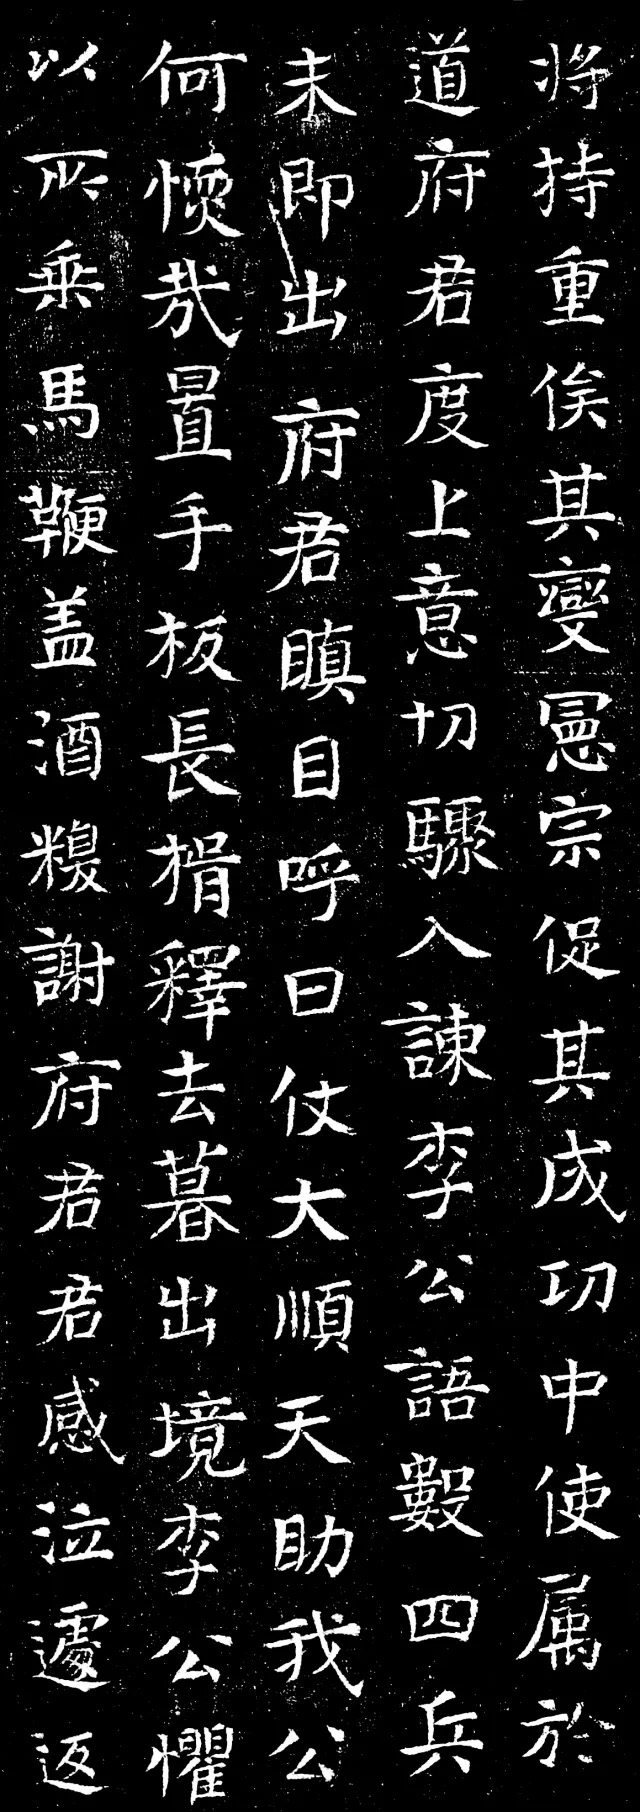 将持重俟其變憲宗促其成功中使属於
道府君度上意切驟入諫李公語數四兵
未即出府君瞋目呼曰仗大順天助我公
何愞哉置手板長揖釋去暮出境李公懼
以所乘馬鞭盖酒謝府君君感泣遽返